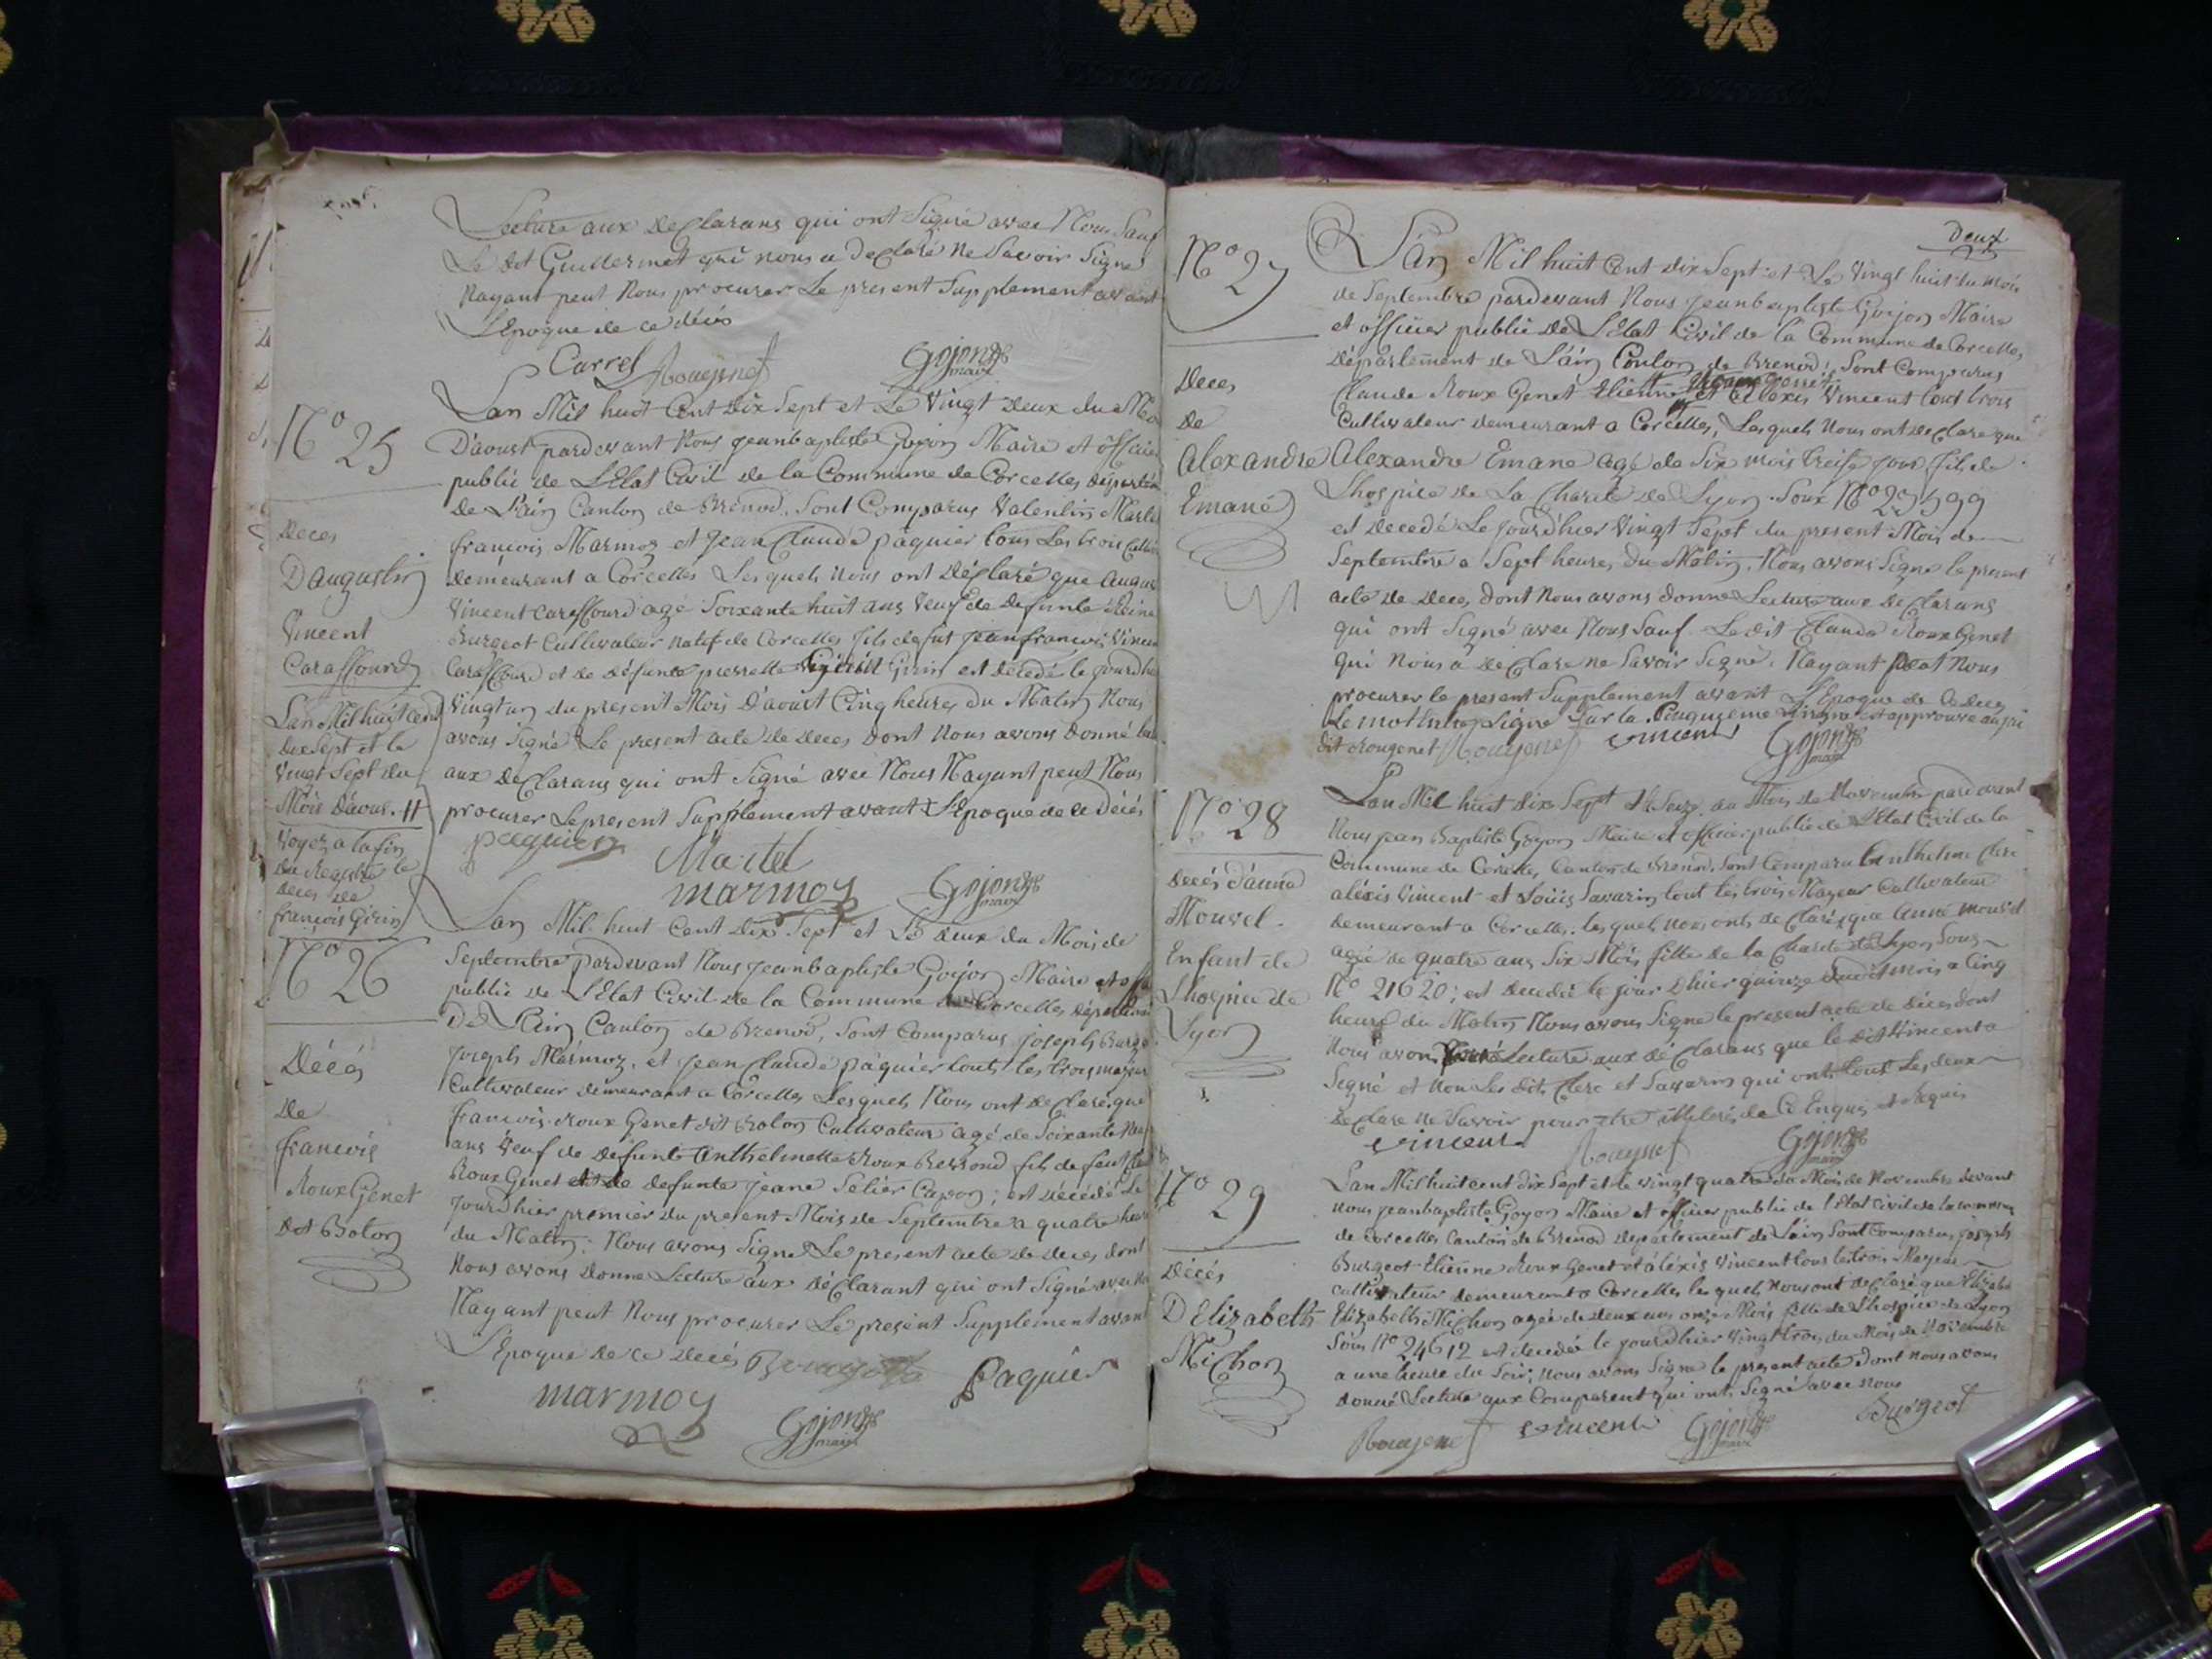 Lecture aux declarans qui ont Signé avec Nous Sauf
Le dit Guillermet qui nous a declaré Ne Savoir Signé
Nayant peut Nous procurer Le present Supplement avant
L'Epoque de ce décés
Carrel Rougenet Gojon maire
N° 25
Deces
D'augustin
Vincent
Caraffourd
Lan Mil huit Cent Dix Sept et Le Vingt Deux du Mo
D'aoust pardevant Nous Jeanbaptiste Gojon Maire et officier
public de L'Etat Civil de la Commune de Corcelles départem
de L'ain Canton de Brenod, Sont Comparus Valentin Martel
francois Marmoz et Jean Claude paquier tous Les trois Cultiv
demeurant a Corcelles Lesquels Nous ont Déclaré que Augus
Vincent Caraffourd agé Soixante huit ans Veuf de Defunte Reine
Burgeot Cultivateur natif de Corcelles fils de fut Jeanfrancois Vincen
Caraffourd et de défunte pierrette Girin est décédé le jourdhier
Vingt un du present Mois D'aoust Cinq heures du Matin Nous
avons Signé Le present acte de deces Dont Nous avons Donné
aux déclarans qui ont Signé avec Nous Nayant peut Nous
procurer Le present Supplement avant L'Epoque de ce Décés
Lan Mil huit Cent
dix Sept et le
Vingt Sept du
Mois D'aous. H
Voyez a la fin
du Registre le
deces de
françois Girin
paquier Martel
marmoz Gojon maire
N° 26
Décés
De
francois
Roux Genet
Dit Bolon
Lan Mil huit Cent Dix Sept et Le deux du Mois de
Septembre Pardevant Nous Jeanbaptiste Gojon Maire et offi
public de L'Etat Civil de la Commune de Corcelles départem
De L'ain Canton de Brenod, Sont Comparus Joseph Burge
Joseph Marmoz, et Jean Claude paquier touts les trois majeur
Cultivateur demeurant a Corcelles Lesquels Nous ont declaré que
francois Roux Genet dit Bolon Cultivateur agé de Soixante
ans Veuf de defunte Anthelmette Roux Bessond fils de feut
Roux Genet et de defunte Jeane Capon; est décédé Le
Jourd'hier premier du present Mois de Septembre a quatre heur
du Matin: Nous avons Signé Le present acte de deces dont
Nous avons Donné Lecture aux déclarant qui ont Signé avec No
Nayant peut Nous procurer Le present Supplement avant
L'Epoque de ce Decés Paquier
marmoz Gojon maire
Deux
N° 27
Deces
de
Alexandre
Emané
L'an Mil huit Cent dix Sept et Le Vingt huit du mois
de Septembre pardevant Nous Jeanbaptiste Gojon Maire
et officier public de L'Etat Civil de la Commune de Corcelles,
département de L'ain Canton de Brenod; Sont Comparus
Claude Roux Genet Etienne et Alexis Vincent tous trois
Cultivateur demeurant a Corcelles, Lesquels Nous ont declaré que
Alexandre Emane agé de Six mois treise jour fils de
Lhospice de La Charité de Lyon Sour N° 29599
est decedé Le Jourd'hier Vingt Sept du present Mois de
Septembre a Sept heures du Matin, Nous avons Signé le present
acte de deces, dont Nous avons donné Lecture aux declarans
qui ont Signé avec Nous Sauf Le dit Claude Roux Genet
qui Nous a declare ne Savoir Signé. Nayant peut Nous
procurer le present Supplement avant L'Epoque de ce deces
Le mot Signé Sur la Cinquieme est approuvé
dit Rougenet Rougenet vincent Gojon maire
N° 28
decés d'anne
Mouvel
Enfant de
Lhospice de
Lyon
Lan Mil huit dix Sept et Seize au Mois de Novembre pardevant
Nous Jean Baptiste Gojon Maire et officier public de L'Etat Civil de la
Commune de Corcelles, Canton de Brenod, Sont Comparu Anthelme Clerc
aléxis Vincent et Loüis Savarin tout les trois Mageur Cultivateur
demeurant a Corcelles. lesquels nous onts declaré que Anne mouvel
agée de quatre ans Six Mois fille de la Charité de Lyon Sous
N° 21620; est decedé le jour Dhier quinze dudit mois a Cinq
heure du Matin Nous avons Signé le present acte de déces dont
Nous avons Lecture aux déclarans que le dit Vincent a
Signé et Non Les dits Clerc et Savarin qui ont tout Les deux
declare ne Savoir pour de ce Enquis et Requis
vincent Rougenet Gojon maire
N° 29
Décés
D'Elizabeth
Michon
Lan Mil huit cent dix Sept et le vingt quatre du Mois de Novembre devant
nous Jeanbaptiste Gojon Maire et officier public de l'Etat Civil de la commune
de Corcelles Canton de Brenod departement de Lain Sont Comparus joseph
Burgeot Etienne Roux Genet et aléxis Vincent tous les trois Mageur
cultivateur demeurant a Corcelles lesquels nous ont declaré que
Elizabeth Michon agée de deux ans onze Mois fille de Lhospice de Lyon
Sous N° 24612 est decedée le jourdhier Vingt trois du Mois de Novembre
a une heure du Soir; nous avons Signé le present acte dont nous avons
donné Lecture aux Comparent qui ont Signé avec nous
Rougenet vincent Gojon maire Burgeot